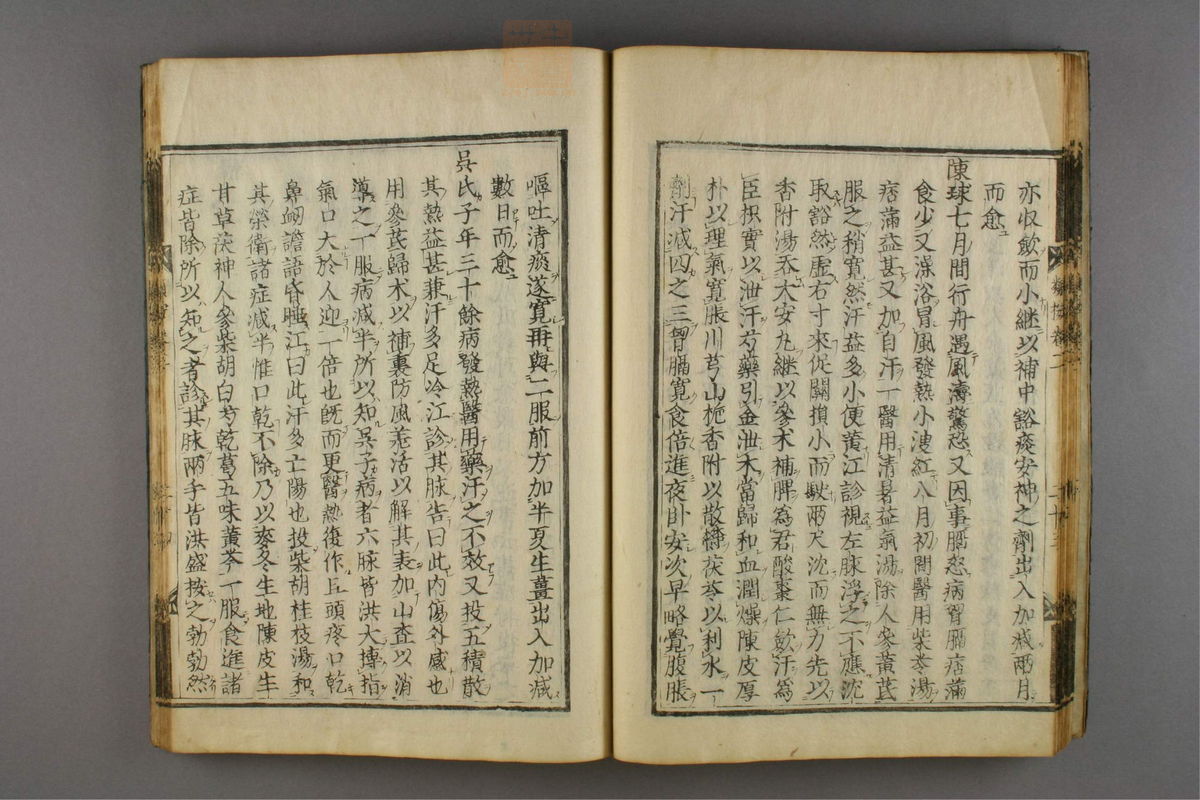 亦収歛而小継以補中豁痰安神之劑出入加减兩月
而愈
陳球七月間行舟遇風濤驚恐又因事悒怒病胷膈痞滿
食少又澡浴冒風發熱小溲紅八月初間醫用柴苓湯
痞滿益甚又加自汗一醫用清暑益氣湯除人參黄芪
服之稍寛然汗益多小便黄江診視左脉浮之不應沈
取豁然虚右寸來促關損小而駛兩尺沈而無力先以
香附湯吞大安丸継以參术補脾爲君酸棗仁歛汗爲
臣枳實以泄汗芍藥引金泄木當歸和血潤燥陳皮厚
朴以理氣寛脹川芎山梔香附以散欝茯苓以利水一
劑汗减四之三胷膈寛食倍進夜卧安次早略覺腹脹
嘔吐清痰遂寛再與二服前方加半夏生薑出入加减
數日而愈
吳氏子年三十餘病發熱醫用藥汗之不效又投五積散
其熱益甚兼汗多足冷江診其脉告曰此内傷外感也
用參芪歸术以補裏防風羗活以解其表加山査以消
導之一服病减半所以知吳子病者六脉皆洪大搏指
氣口大於人迎一倍也旣而更醫熱復作且頭疼口乾
鼻衂譫語昏睡江曰此汗多亡陽也投柴胡桂枝湯和
其榮衛諸症减半惟口乾不除乃以麥冬生地陳皮生
甘草茯神人參柴胡白芍乾葛五味黄芩一服食進諸
症皆除所以知之者診其脉兩手皆洪盛按之勃勃然